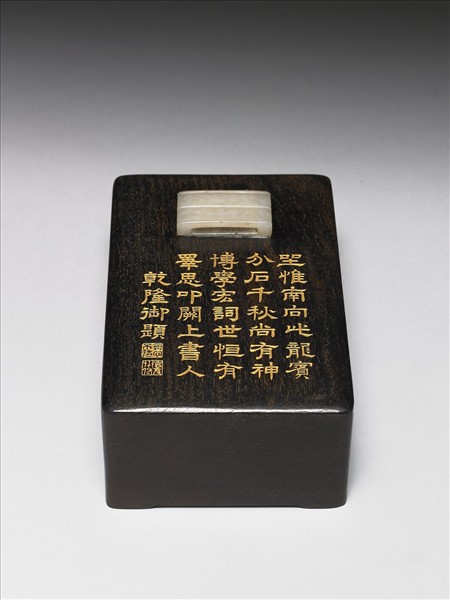 坐惟南向北龍賓
介石千秋尚有神
博學宏詞世恒有
睪思叩闕上書人
乾隆御題